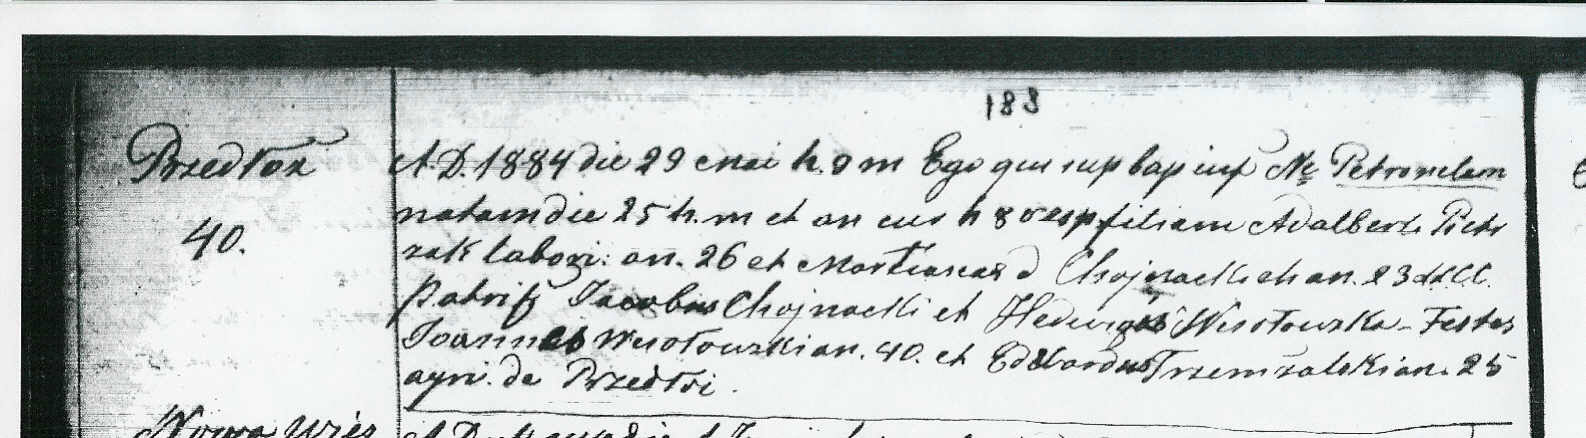 183
Przedłoz
A.D. 1884 die 29 Mai h. 9 m Ego qui sup bap inf No Petronelam
40.
natam die 25 h. m et an cus h 8 vesp filiam Adalberti Pietr
zak an. 26 et Marianae d Chojnackich an. 23 dLCC.
Patrif Jacobus Chojnacki et Hedvigas Wesołowska - Testes
Joannes Wesołowski an. 40. et Edwardus an. 25
agri. de
Nowa Wies